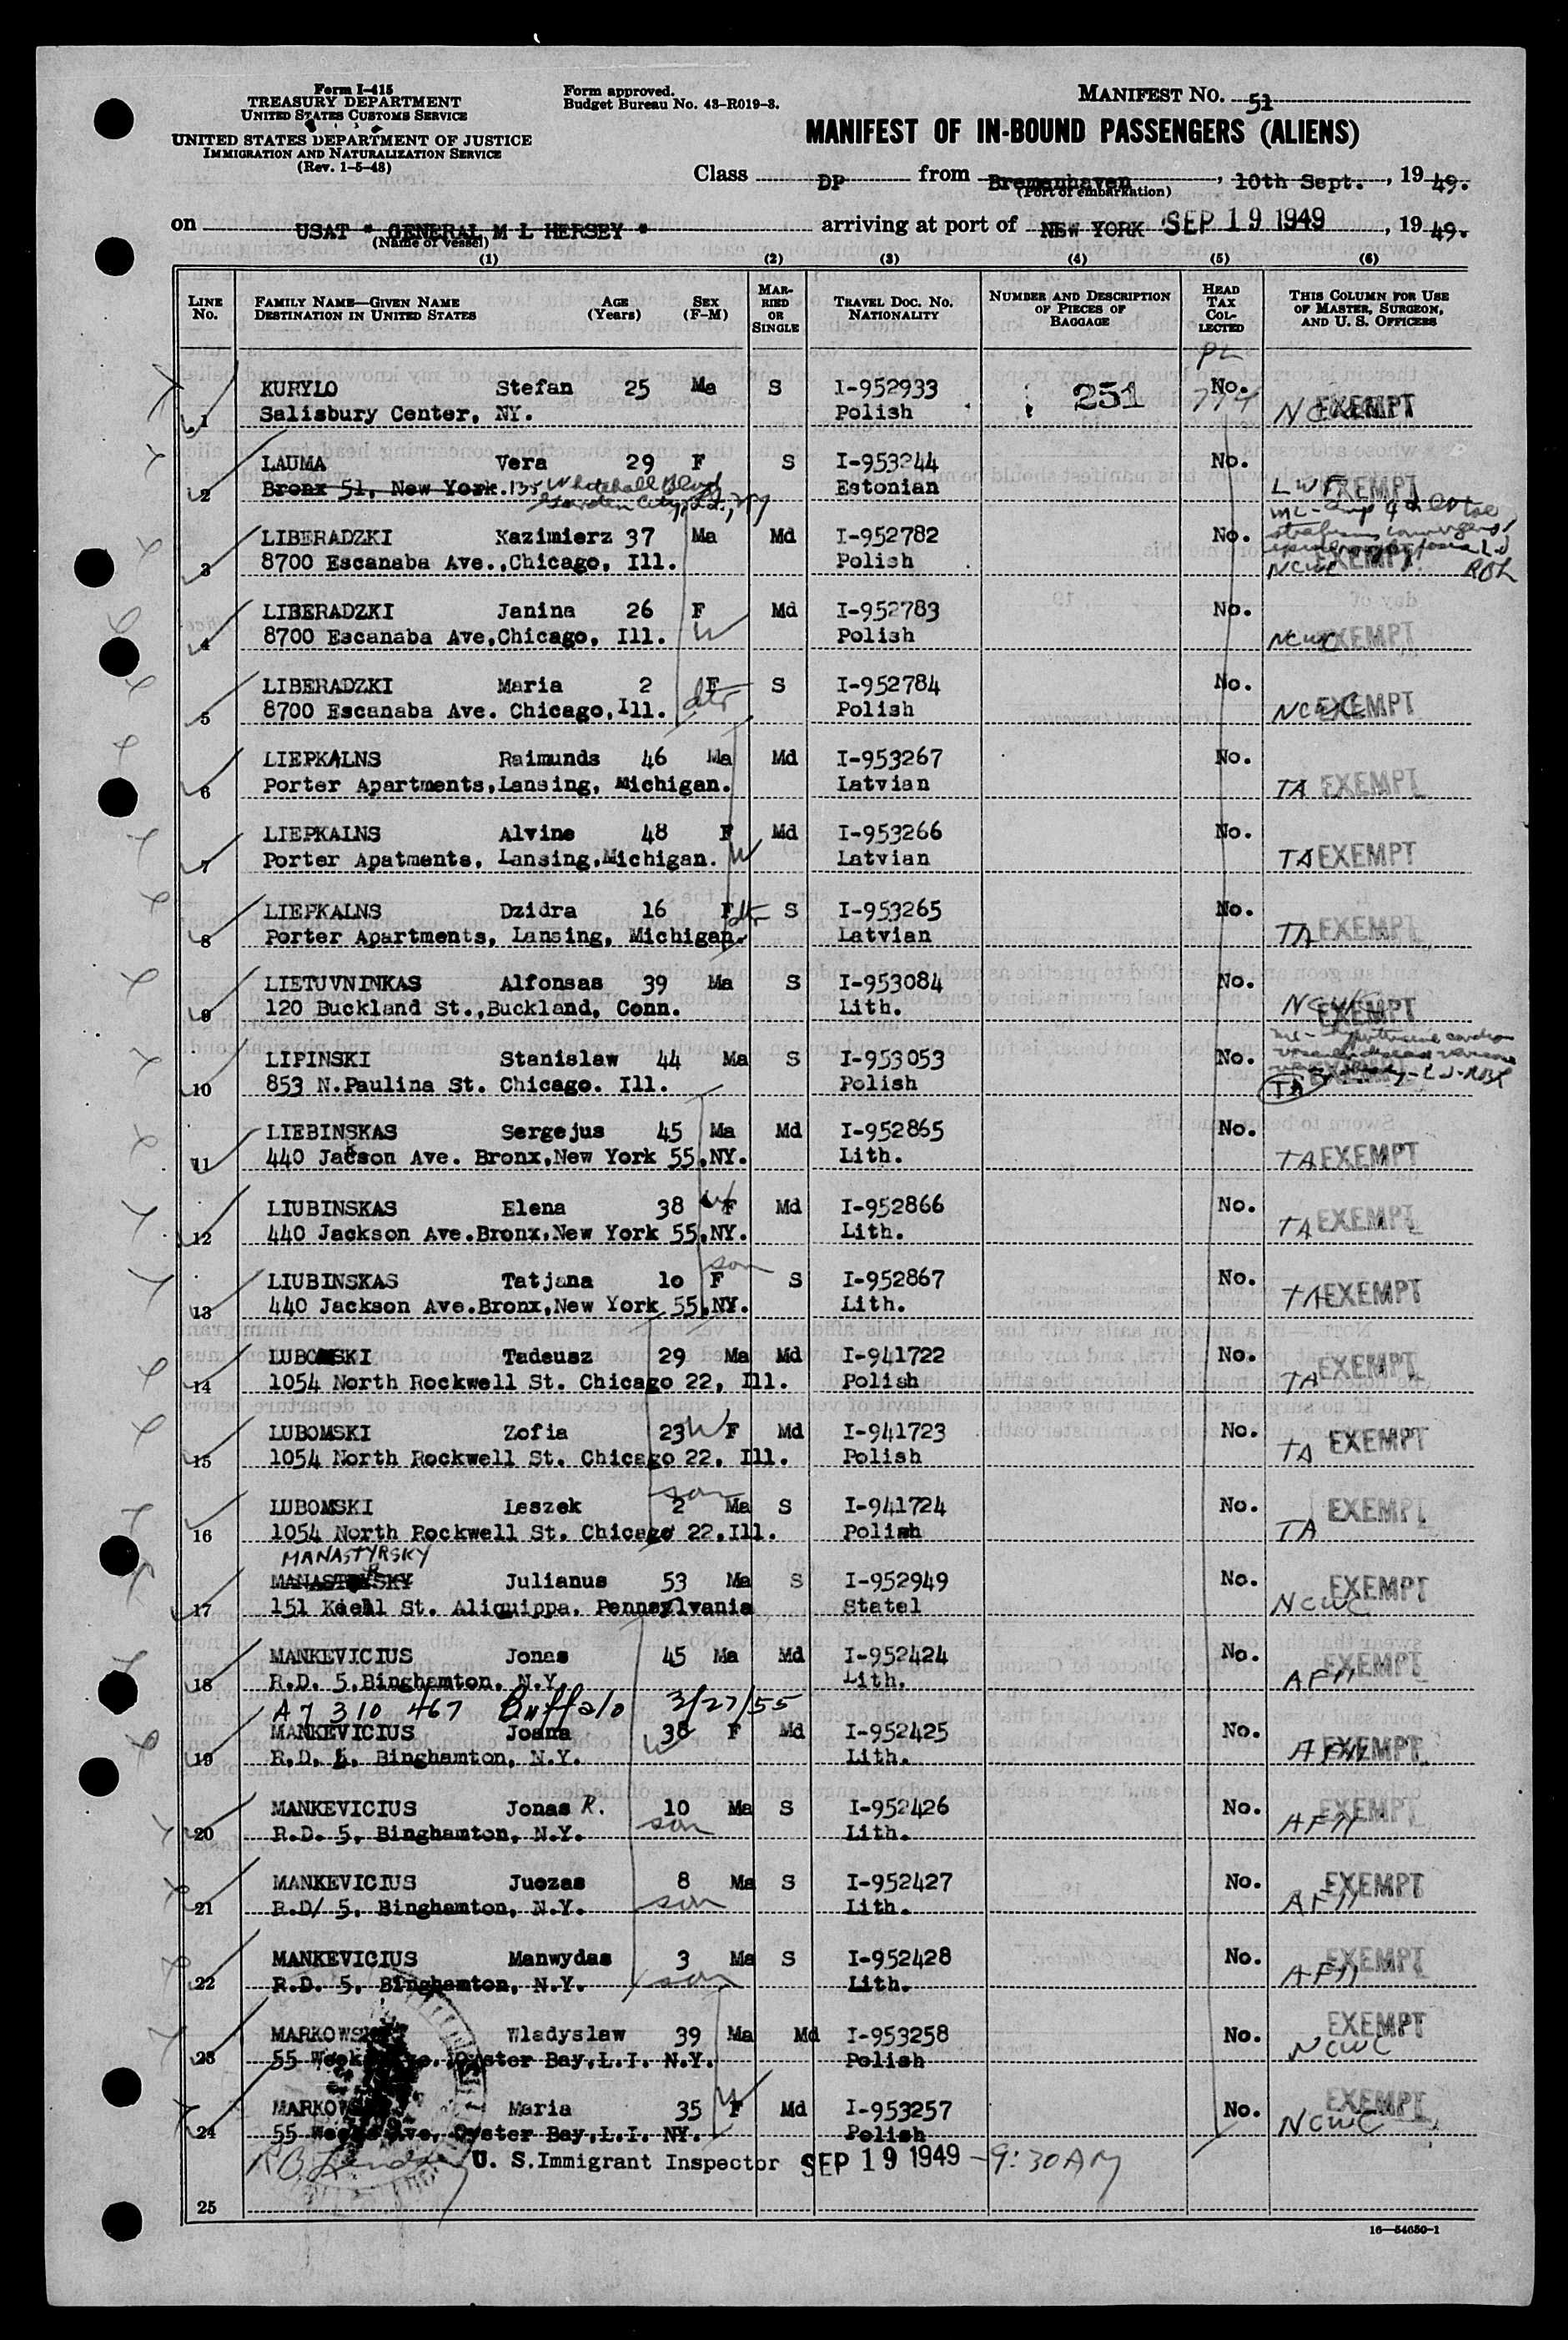 Form I-415
TREASURY DEPARTMENT
UNITED STATES CUSTOMS SERVICE
UNITED STATES DEPARTMENT OF JUSTICE
IMMIGRATION AND NATURALIZATION SERVICE
(Rev. 1-5-48)
Form approved.
Budget Bureau No. 43-R019-3.
MANIFEST NO. 51
MANIFEST OF IN-BOUND PASSENGERS (ALIENS)
Class DP from Bremenhaven, 10th Sept., 19 49.
(Port of embarkation)
on USAT " GENERAL M L HERSEY " arriving at port of NEW YORK SEP 19 1949, 19 49.
(Name of vessel)
(1) (2) (3) (4) (5) (6)
LINE No. FAMILY NAME—GIVEN NAME DESTINATION IN UNITED STATES AGE (Years) SEX (F-M) MARRIED OR SINGLE TRAVEL DOC. NO. NATIONALITY NUMBER AND DESCRIPTION OF PIECES OF BAGGAGE HEAD TAX COLLECTED THIS COLUMN FOR USE OF MASTER, SURGEON, AND U. S. OFFICERS
PL
KURYLO Stefan 25 Ma S I-952933 251 No.
1 Salisbury Center, NY. Polish 774 NCWC EXEMPT
LAUMA Vera 29 F S I-953244 No.
2 Bronx 51, New York. 135 Whitehall Blvd Estonian LWF EXEMPT
Garden City, L.I., NY
LIBERADZKI Kazimierz 37 Ma Md I-952782 No.
3 8700 Escanaba Ave.,Chicago, Ill. Polish NCWC EXEMPT RBL
LIBERADZKI Janina 26 F Md I-952783 No.
4 8700 Escanaba Ave,Chicago, Ill. W Polish NCWC EXEMPT
LIBERADZKI Maria 2 F S I-952784 No.
5 8700 Escanaba Ave. Chicago,Ill. dtr Polish NCWC EXEMPT
LIEPKALNS Raimunds 46 Ma Md I-953267 No.
6 Porter Apartments,Lansing, Michigan. Latvian TA EXEMPT
LIEPKALNS Alvine 48 F Md I-953266 No.
7 Porter Apatments, Lansing,Michigan. W Latvian TA EXEMPT
LIEPKALNS Dzidra 16 F dtr S I-953265 No.
8 Porter Apartments, Lansing, Michigan. Latvian TA EXEMPT
LIETUVNINKAS Alfonsas 39 Ma S I-953084 No.
9 120 Buckland St.,Buckland, Conn. Lith. NCWC EXEMPT
LIPINSKI Stanislaw 44 Ma S I-953053 No.
10 853 N.Paulina St. Chicago. Ill. Polish TA EXEMPT
LIEBINSKAS Sergejus 45 Ma Md I-952865 No.
11 440 Jackson Ave. Bronx,New York 55,NY. Lith. TA EXEMPT
LIUBINSKAS Elena 38 W F Md I-952866 No.
12 440 Jackson Ave.Bronx,New York 55,NY. Lith. TA EXEMPT
LIUBINSKAS Tatjana 10 F son S I-952867 No.
13 440 Jackson Ave.Bronx,New York 55,NY. Lith. TA EXEMPT
LUBOMSKI Tadeusz 29 Ma Md I-941722 No.
14 1054 North Rockwell St. Chicago 22, Ill. Polish TA EXEMPT
LUBOMSKI Zofia 23 W F Md I-941723 No.
15 1054 North Rockwell St. Chicago 22, Ill. Polish TA EXEMPT
LUBOMSKI Leszek son 2 Ma S I-941724 No.
16 1054 North Rockwell St. Chicago 22,Ill. Polish TA EXEMPT
MANASTYRSKY
Julianus 53 Ma S I-952949 No.
17 151 Kiehl St. Aliquippa, Pennsylvania Statel NCWC EXEMPT
MANKEVICIUS Jonas 45 Ma Md I-952424 No.
18 R.D. 5,Binghamton, N.Y. Lith. AFH EXEMPT
A7 310 467 Buffalo 3/27/55
MANKEVICIUS Joana 38 F Md I-952425 No.
19 R.D. 5, Binghamton, N.Y. W Lith. AFH EXEMPT
MANKEVICIUS Jonas R. 10 Ma S I-952426 No.
20 R.D. 5, Binghamton, N.Y. son Lith. AFH EXEMPT
MANKEVICIUS Juozas 8 Ma S I-952427 No.
21 R.D/ 5, Binghamton, N.Y. son Lith. AFH EXEMPT
MANKEVICIUS Manwydas 3 Ma S I-952428 No.
22 R.D. 5, Binghamton, N.Y. son Lith. AFH EXEMPT
MARKOWSKI Wladyslaw 39 Ma Md I-953258 No.
23 55 Weeks Ave. Oyster Bay,L.I. N.Y. Polish NCWC EXEMPT
MARKOWSKI Maria 35 W F Md I-953257 No.
24 55 Weeks Ave, Oyster Bay,L.I. NY. Polish NCWC EXEMPT
U. S.Immigrant Inspector SEP 19 1949 - 9:30 AM
25
16—54650-1